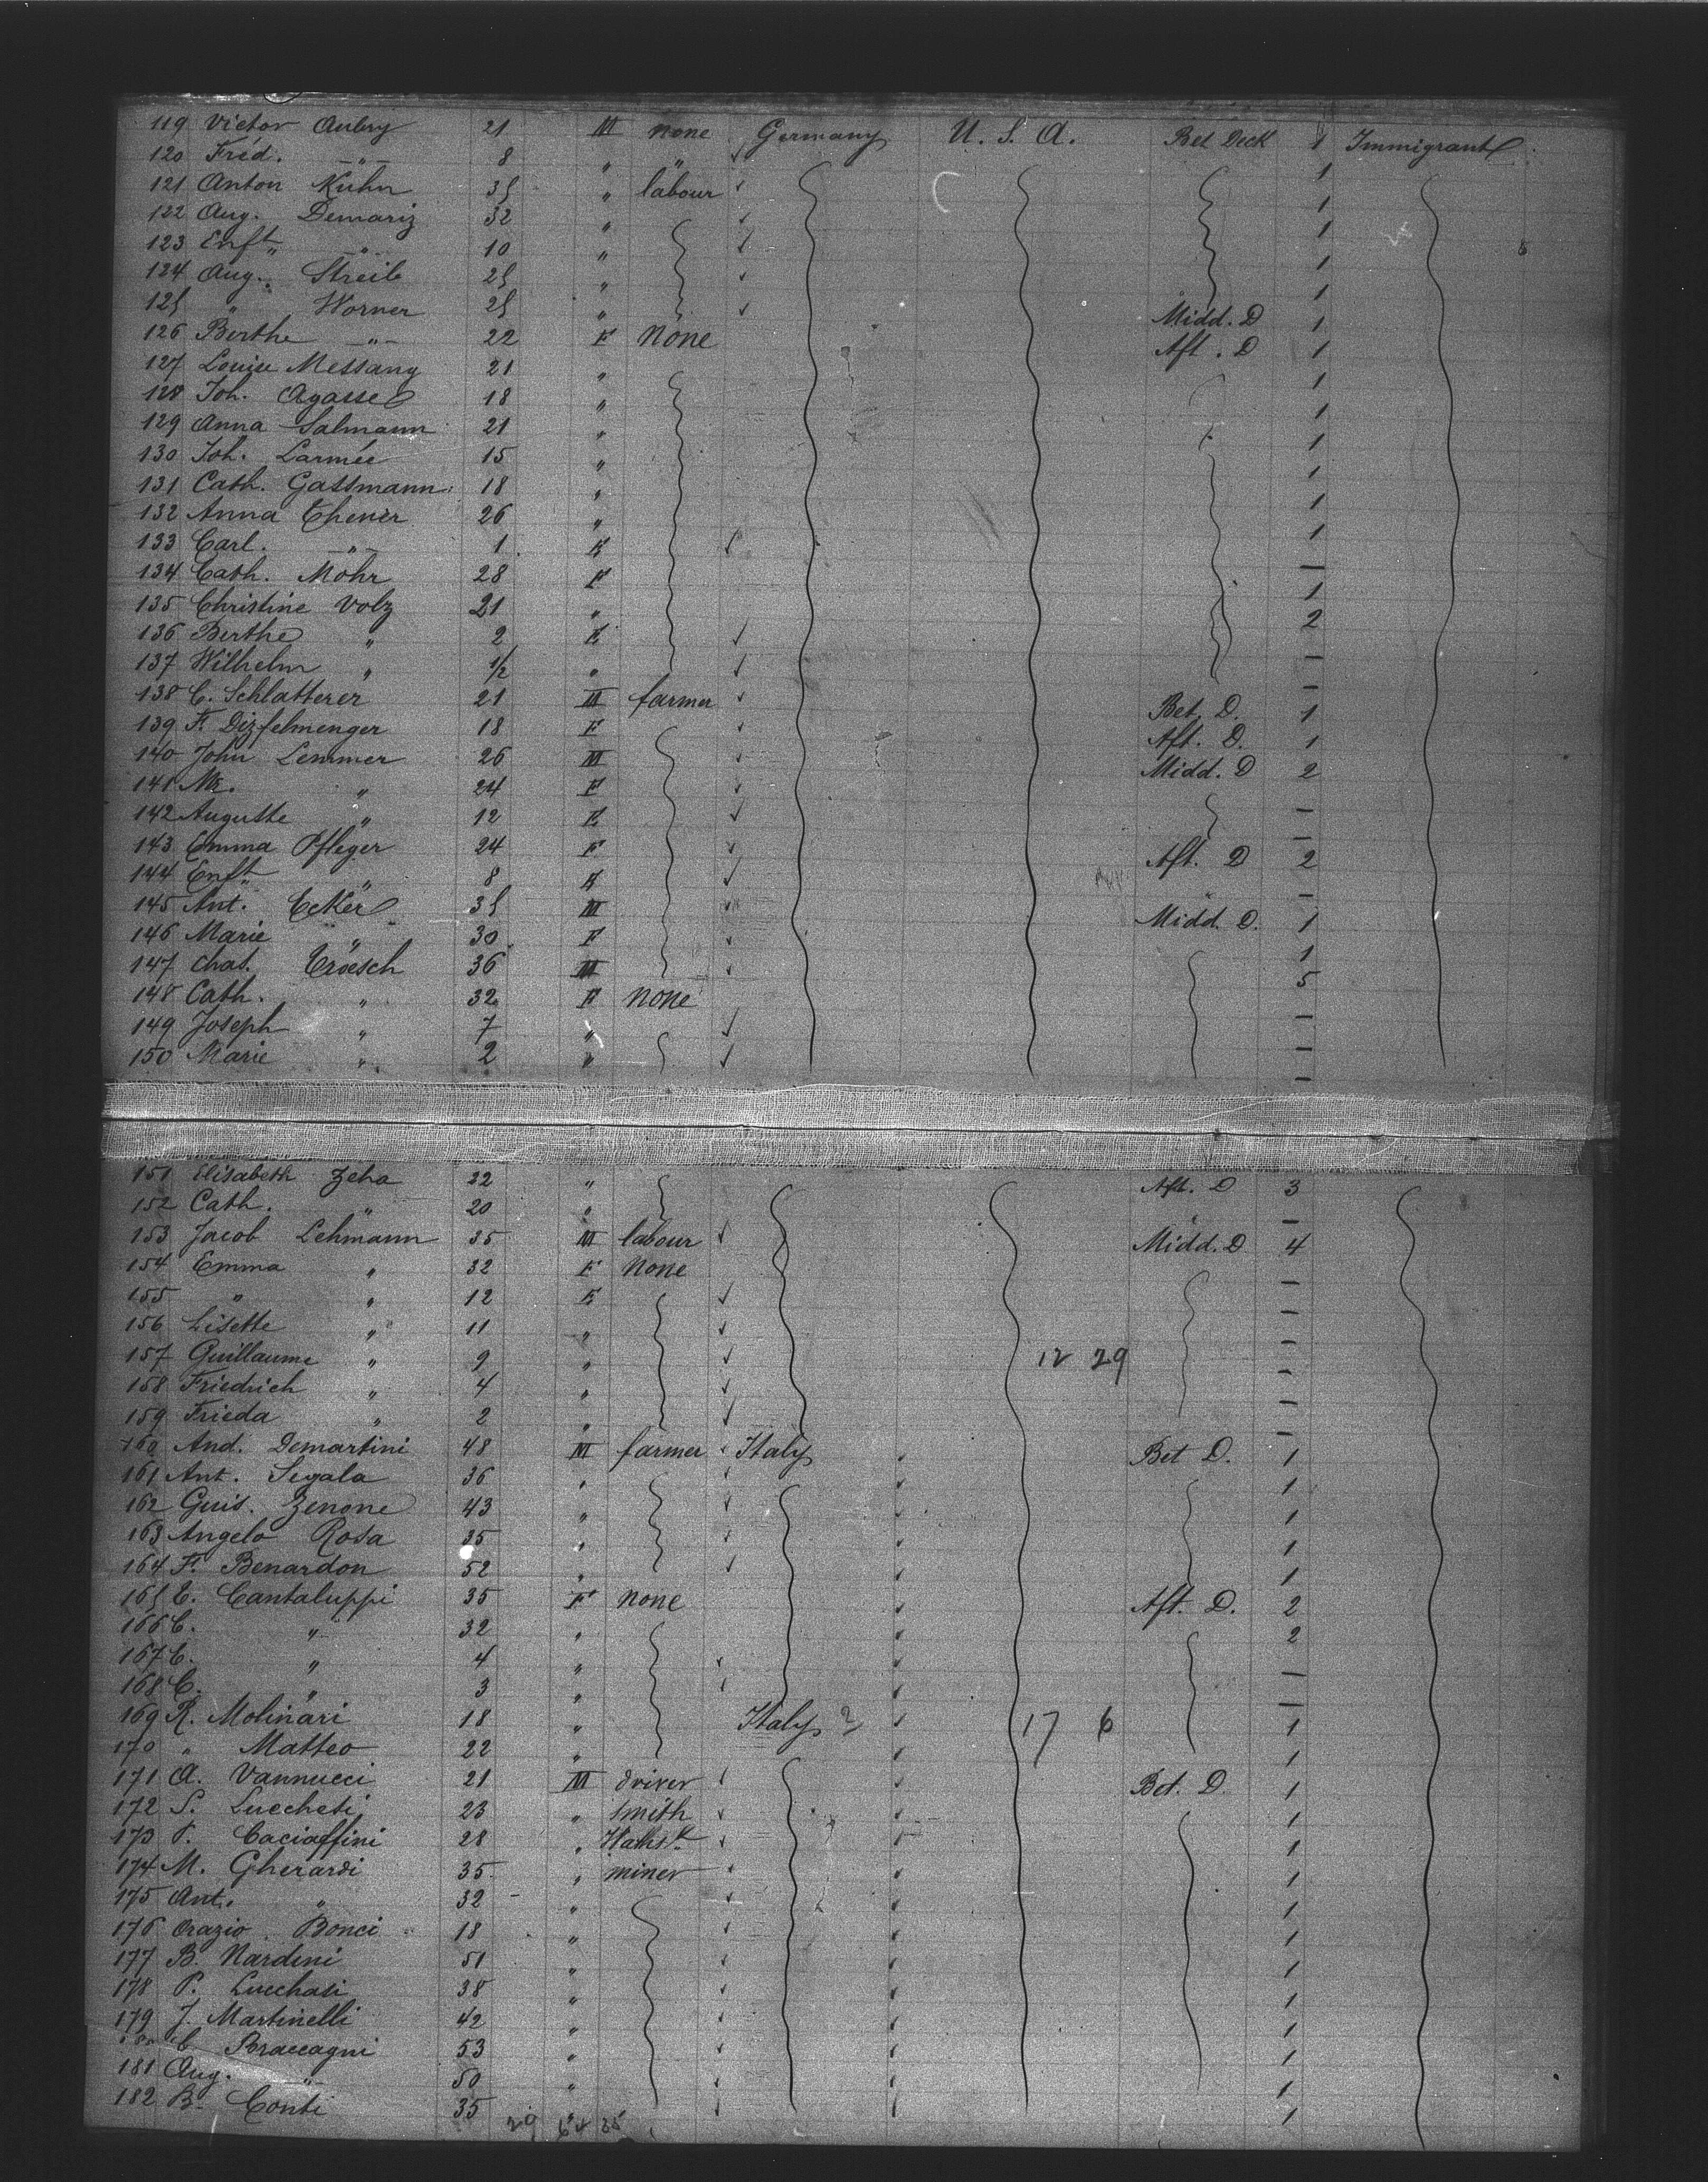 119 Victor Aubry 21 M none Germany U. S. A. Bet Deck 1 Immigrant
120 Fréd. —"— 8 " " 1
121 Anton Kuhn 35 " labour 1
122 Aug. Demariz 32 " 1
123 Enft " —"— 10 " 1
124 Aug. Streib 25 " 1
125 " Worner 25 " Midd. D 1
126 Berthe —"— 22 F None Aft. D 1
127 Louise Messang 21 " 1
128 Joh. Agasse 18 " 1
129 Anna Salmann 21 " 1
130 Joh. Larmée 15 " 1
131 Cath. Gassmann 18 " 1
132 Anna Thener 26 " 1
133 Carl. —"— 1 E —
134 Cath. Mohr 28 F 1
135 Christine Volz 21 " 2
136 Berthe " 2 E —
137 Wilhelm " 1/2 " —
138 C. Schlatterer 21 M farmer Bet. D. 1
139 F. Dizfelmenger 18 F Aft. D. 1
140 John Lemmer 26 M Midd. D 2
141 " 24 F —
142 Auguste " 12 E —
143 Emma Pfleger 24 F Aft. D 2
144 Enft " " 8 E —
145 Ant. Ecker 35 M Midd. D. 1
146 Marie " 30 F 1
147 Chas. Croesch 36 M 5
148 Cath. " 32 F none —
149 Joseph " 7 " —
150 Marie " 2 " —
151 Elisabeth Zeha 22 " Aft. D 3
152 Cath. " 20 " —
153 Jacob Lehmann 35 M labour Midd. D 4
154 Emma " 32 F None —
155 " " 12 E —
156 Lisette " 11 " —
157 Guillaume " 9 " 12 29 —
158 Friedrich " 4 " —
159 Frieda " 2 " —
160 And. Demartini 48 M farmer Italy Bet D. 1
161 Ant. Segala 36 " 1
162 Guis. Zenone 43 " 1
163 Angelo Rosa 35 " 1
164 F. Benardon 52 " 1
165 E. Cantaluppi 35 F none Aft. D. 2
166 C. " 32 " 2
167 C. " 4 " —
168 C. " 3 " —
169 R. Molinari 18 " Italy 17 6 1
170 " Matteo 22 " 1
171 A. Vannucci 21 M driver Bet. D. 1
172 S. Luccheti 23 " smith 1
173 Caciaffini 28 " 1
174 M. Gherardi 35 " miner 1
175 Ant. " 32 " 1
176 Orazio Bonci 18 " 1
177 B. Nardini 51 " 1
178 P. Lucchasi 38 " 1
179 J. Martinelli 42 " 1
C. Braccagni 53 " 1
181 Aug. —"— 50 " 1
182 B. Conti 35 " 1
29 35